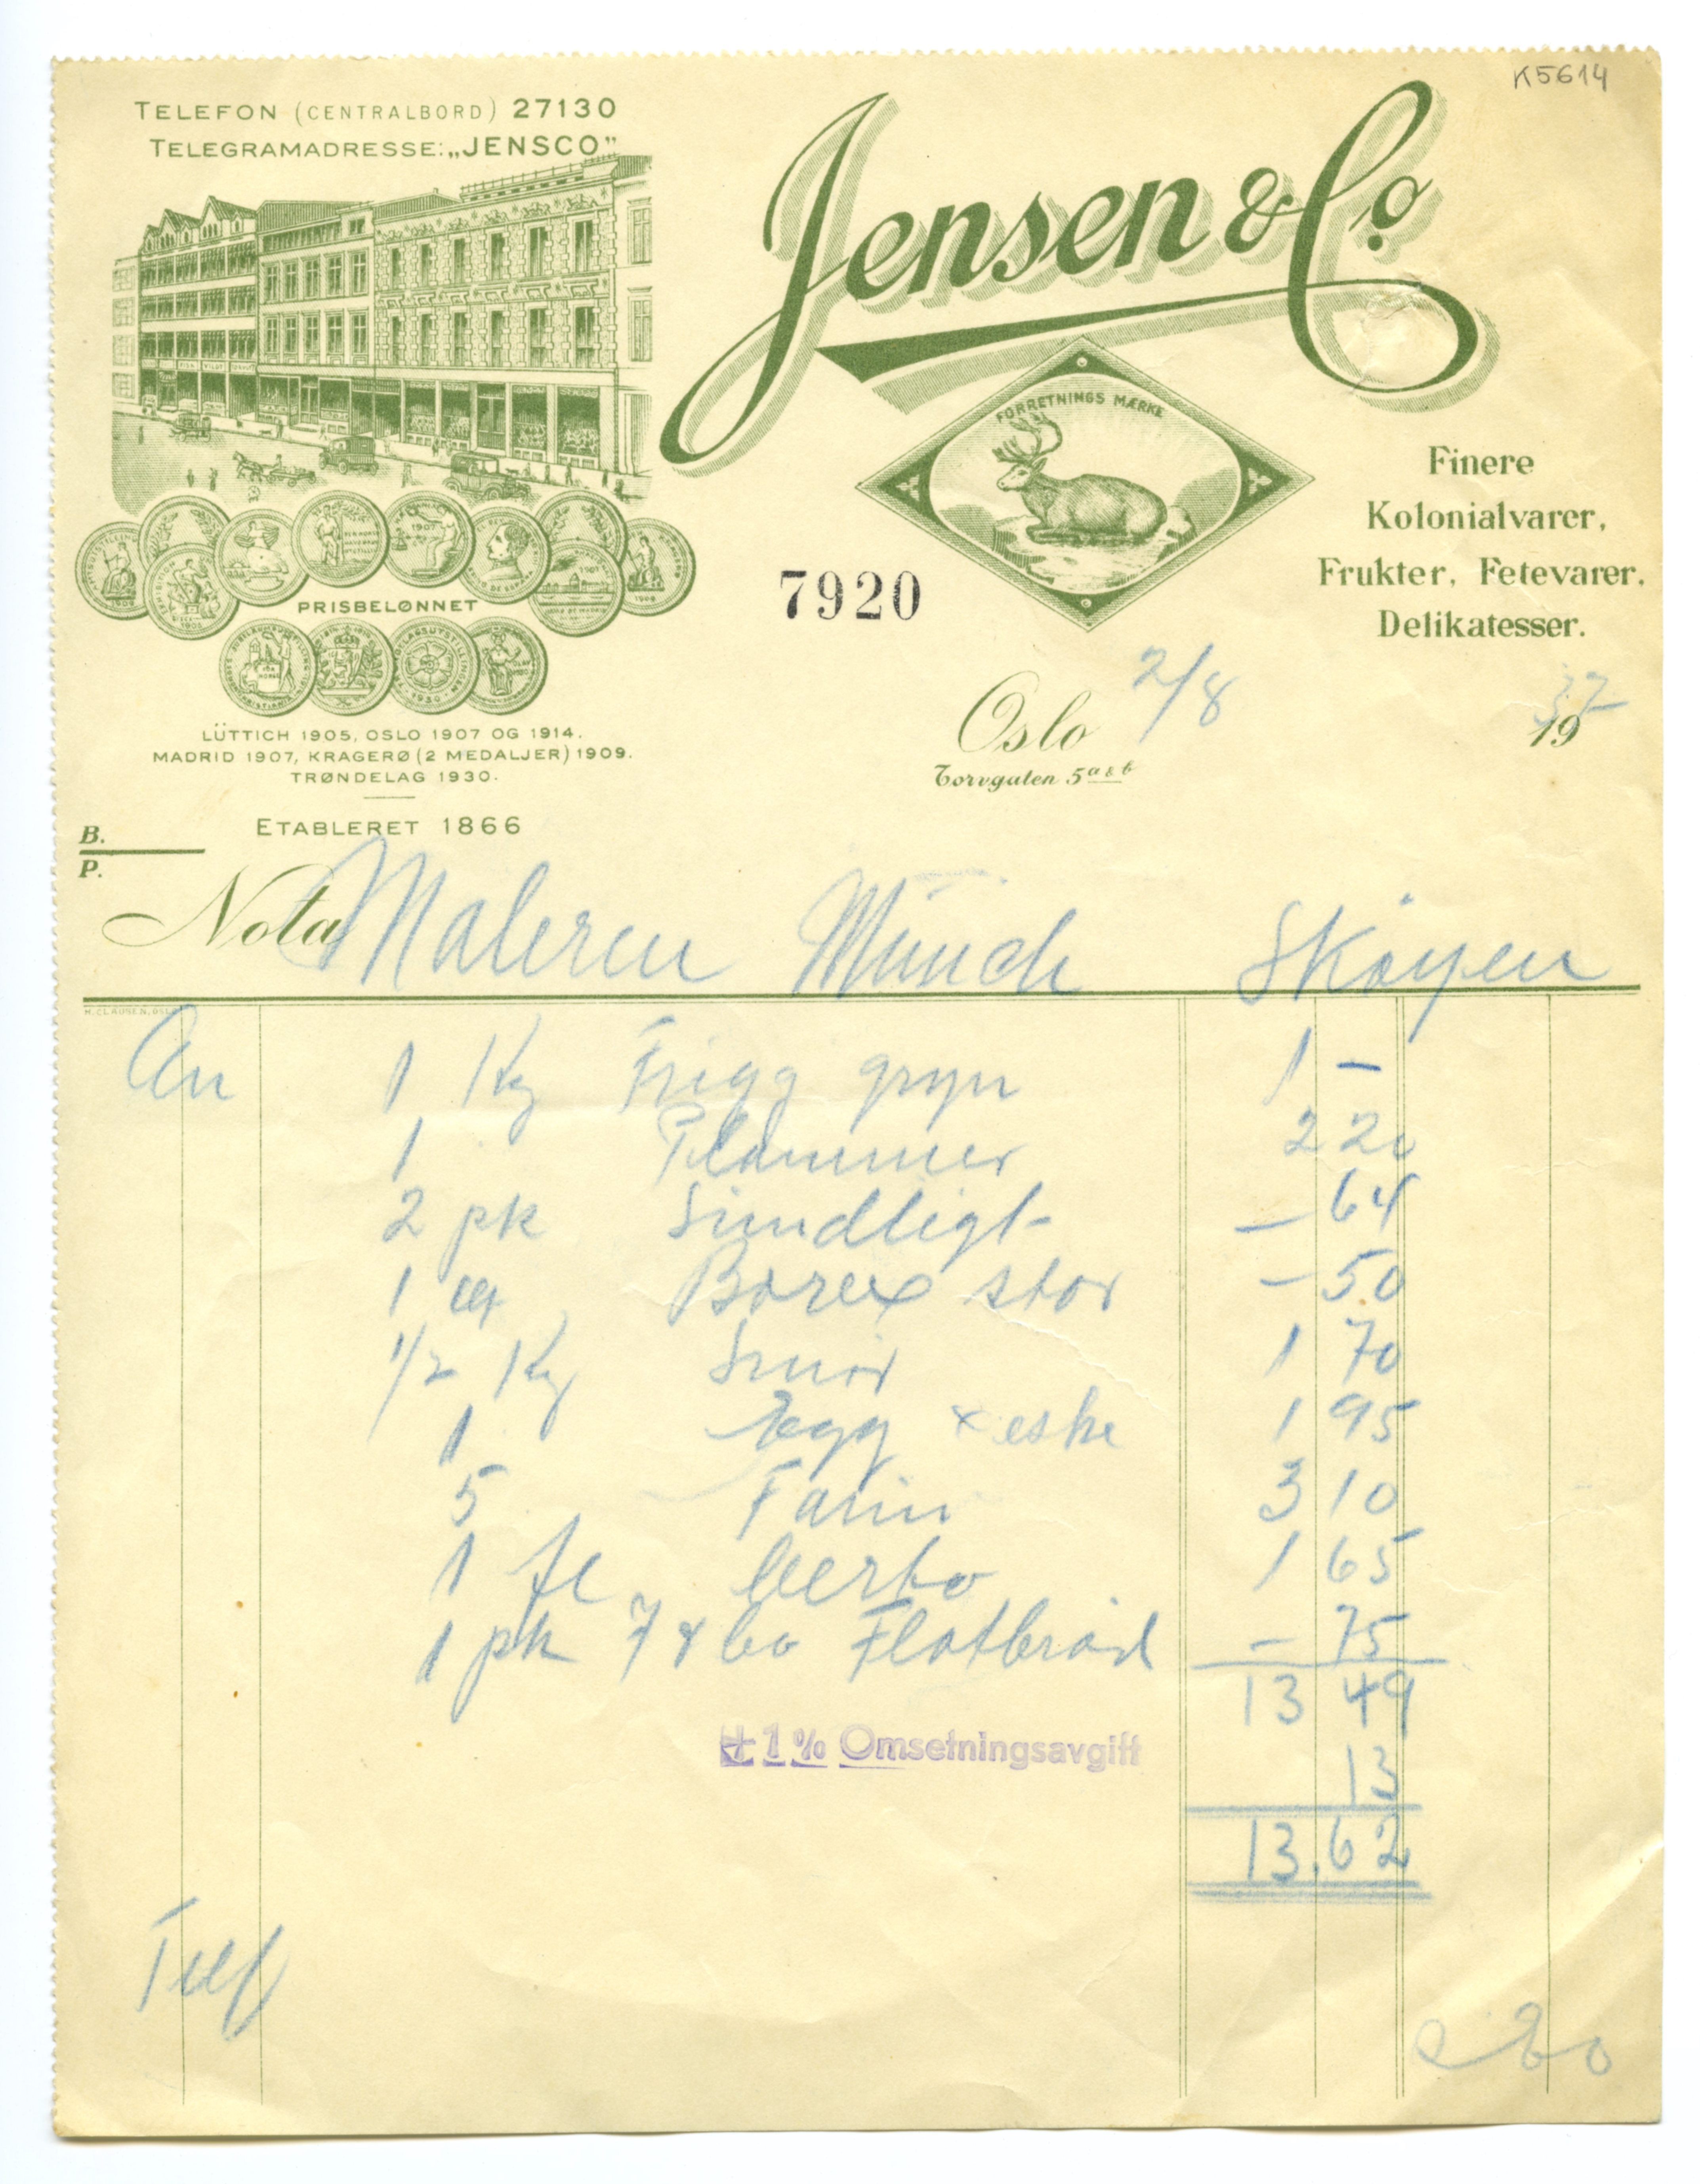 K5614
TELEFON (CENTRALBORD) 27130
TELEGRAMADRESSE: „JENSCO”
Jensen & Co
FORRETNINGS MÆRKE
Finere
Kolonialvarer,
Frukter, Fetevarer,
Delikatesser.
PRISBELØNNET
7920
LÜTTICH 1905, OSLO 1907 OG 1914.
MADRID 1907, KRAGERØ (2 MEDALJER) 1909.
TRØNDELAG 1930.
ETABLERET 1866
Oslo 2/8 1937
Torvgaten 5 a & b
B.
P.
Nota Maleren Münch Skøyen
H. CLAUSEN, OSLO
An 1 Kg Frigg gryn 1 –
1 Plommer 2 20
2 pk Sundligt – 64
1 Borex stor – 50
1/2 Kg Smør 1 70
1 Egg x eske 1 95
5 Farin 3 10
1 fl 1 65
1 pk Flatbrød – 75
13 49
+ 1 % Omsetningsavgift 13
13.62
Telf